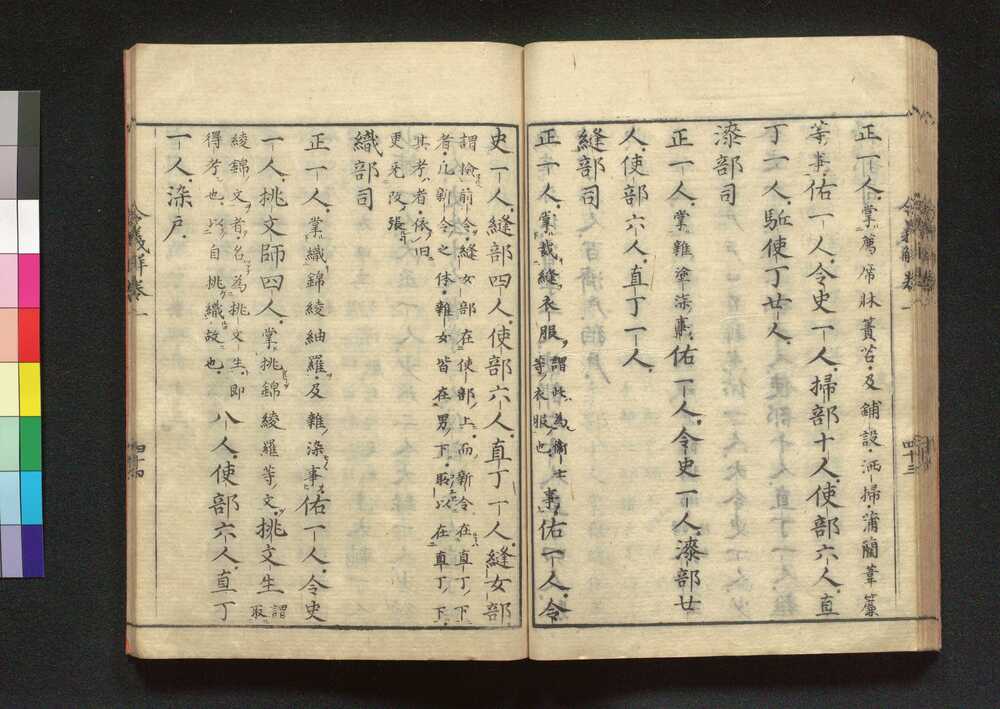 正一人。掌薦席牀簀苫。及鋪設。洒掃。蒲藺葦簾
等事佑一人。令史一人。掃部十人。使部六人。直
丁一人。駈使丁廿人。
漆部司
正一人。掌雜塗漆事。佑一人。令史一人。漆部廿
人。使部六人。直丁一人。
縫部司
正一人。掌裁縫衣服。謂此為衛士等衣服也事佑一人。令
史一人。縫部四人。使部六人。直丁一人。縫女部
謂撿前令。縫女部在使部上。而新令在直丁下
者。凡新令之体。雜女皆在男下。所以在直丁下。
其考者。依旧
更无改張
織部司
正一人。掌織錦綾紬羅。及雜染事。佑一人。令史
一人。挑文師四人。掌挑錦綾羅等文。挑文生謂取
綾錦文者名為挑文生。即
得考也。以自挑織故也。八人。使部六人。直丁
一人。染戸
令義解巻一
四十三
令義解巻一
四十四